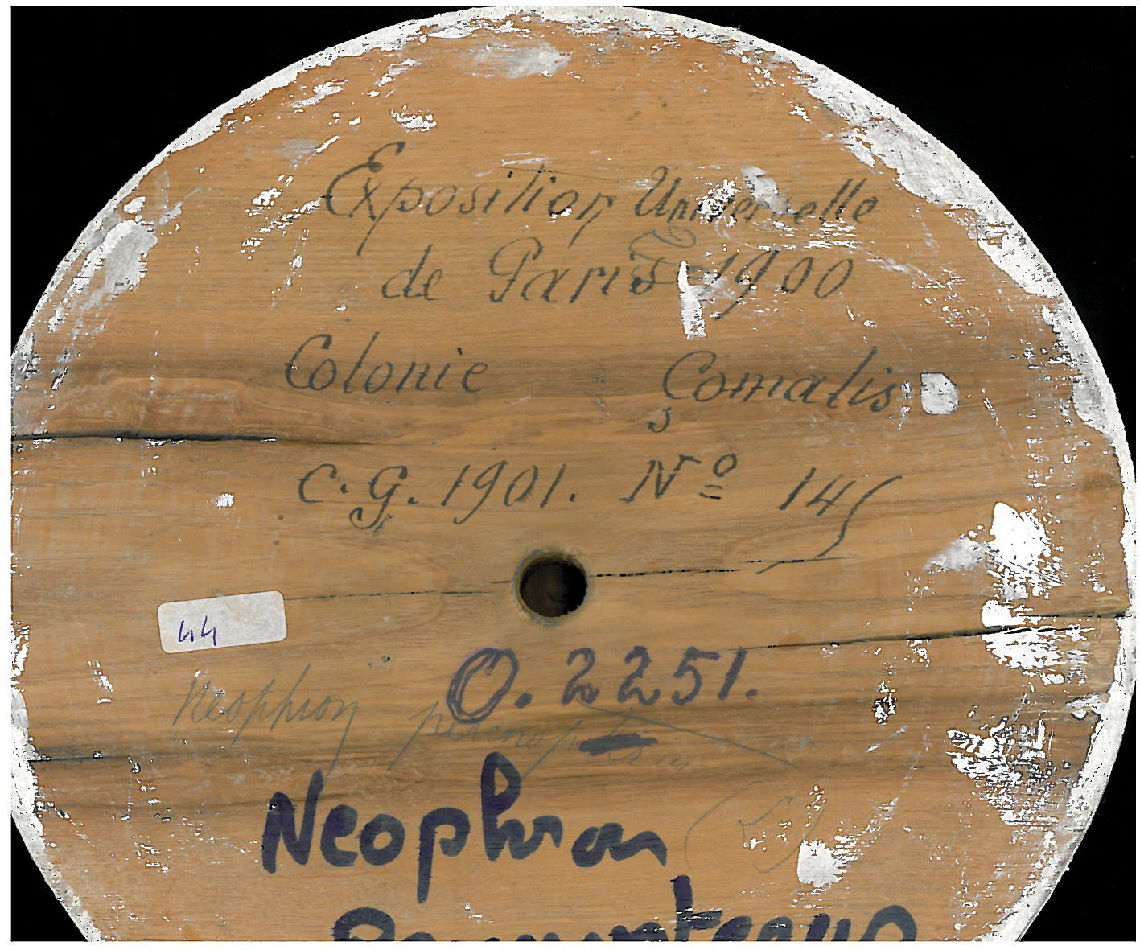 Exposition Universelle
de Paris 1900
Colonie Çomalis
C. G. 1901. Nº 14
44
O. 2251.
Neophron
Neophron